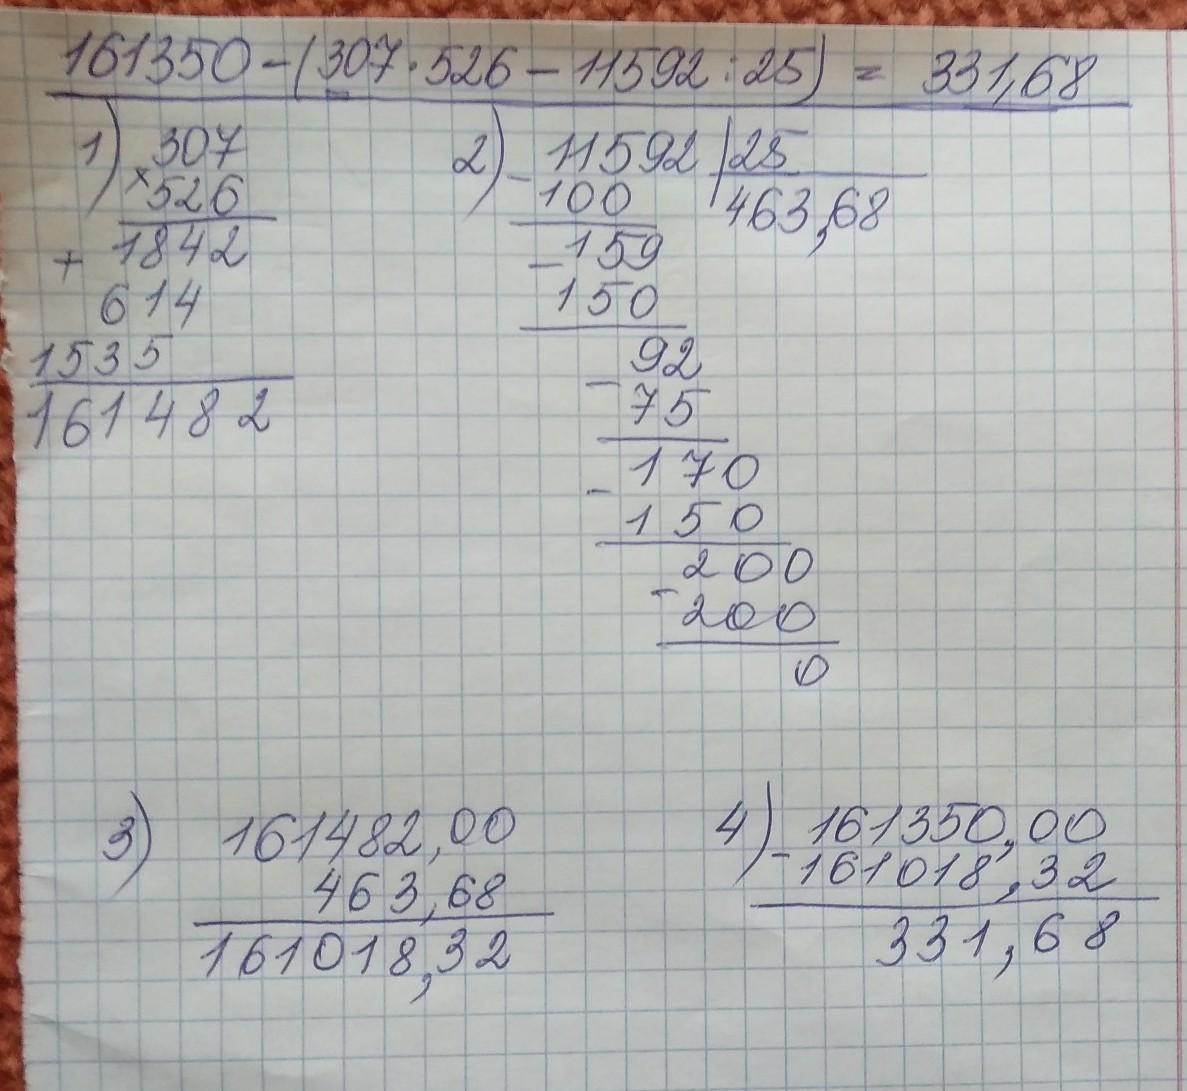 161350-(307·526-11592:25) = 331,68
1) 307
×526
+ 1842
614
1535
161482
2) -11592 |25
100 463,68
-159
150
-92
75
-170
150
-200
200
0
3) 161482,00
463,68
161018,32
4) 161350,00
-161018,32
331,68